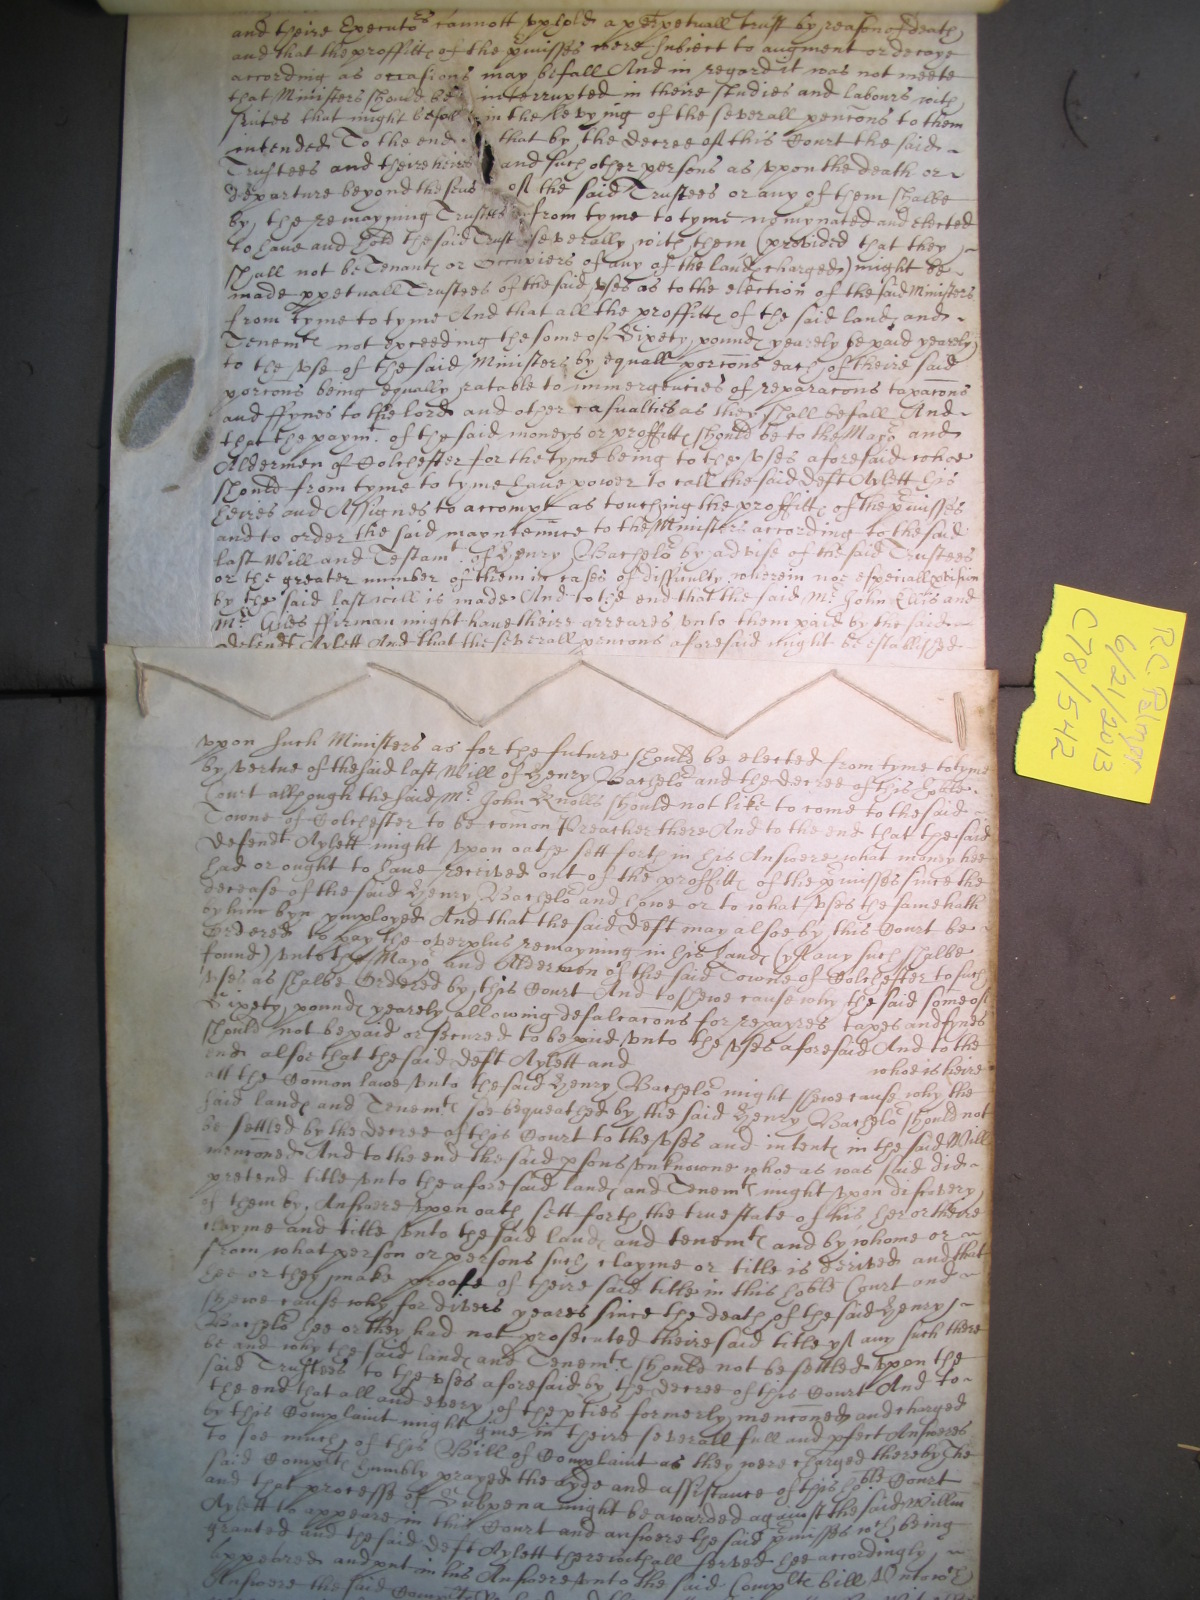 and theire Executo.rs cannott vphold a perpetuall trust by reason of death
and that the proffitts of the p.rmisses were subiect to augment or decaye
according as occasions may befall And in regard it was not meete
that Ministers should be interrupted in theire studies and labours with
suites that might befall in the levying of the severall pencons to them
intended To the end that by the decree of this Court the said
Trustees and theire heires and such other persons as vpon the death or
departure beyond the seas of the said Trustees or any of them shalbe
by the remayning Trustees from tyme to tyme nomynated and elected
to have and hold the said Trust severally with them (provided that they
shall not be Tenants or Occupiers of any of the lands charged) might be
made ppetuall Trustees of the said vses as to the election of the said Ministers
from tyme to tyme And that all the proffitts of the said lands and
Tenem.ts not exceeding the some of Sixety pounds yearely be paid yearely
to the vse of the said Ministers by equall porcons each of theire said
porcons being equally ratable to immergencies of reparacons taxacons
and ffynes to the lord and other casualties as they shall befall And
that the paym.t of the said moneys or proffitts should be to the Mayo.r and
Aldermen of Colchester for the tyme being to the vses aforesaid whoe
should from tyme to tyme have power to call the said deft Aylett his
heires and Assignes to accompt as touching the proffitts of the p.rmisses
and to order the said mayntennce to the Ministers according to the said
last Will and Testam.t of Henry Bachelo.r by advise of the said Trustees
or the greater number of them in cases of difficulty wherein noe especiall pvision
by the said last will is made And to the end that the said M.r John Ellis and
M.r Gyles ffirman might have theire arreares vnto them paid by the said
defendt Aylett And that the severall pencons aforesaid might be established
vpon such Ministers as for the future should be elected from tyme to tyme
by vertue of the said last Will of Henry Bachelo.r and the decree of this hoble
Court although the said M.r John Knolls should not like to come to the said
Towne of Colchester to be comon Preacher there And to the end that the said
defendt Aylett might vpon oathe sett forth in his Answere what money hee
had or ought to have received out of the proffitts of the p.rmisses since the
decease of the said Henry Bachelo.r and howe or to what vses the same hath
by him byn ymployed And that the said deft may alsoe by this Court be
Ordered to pay the overplus remayning in his hands (yf any such shalbe
found) vnto the Mayo.r and Aldermen of the said Towne of Colchester to such
vses as shalbe Ordered by this Court And to shewe cause why the said some of
Sixety pounds yearely allowing defalcacons for repayres taxes and fynes
should not be paid or secured to be paid vnto the vses aforesaid And to the
end alsoe that the said deft Aylett and whoe is heire
att the Comon lawe vnto the said Henry Bachelo.r might shewe cause why the
said lands and Tenem.ts soe bequeathed by the said Henry Bachelo.r should not
be settled by the decree of this Court to the vses and intents in the said Will
mencioned And to the end the said psons vnknowne whoe as was said did
pretend title vnto the aforesaid lands and Tenem.ts might vpon discovery
of them by Answere vpon oath sett forth the true state of his her or theire
clayme and title vnto the said lands and tenem.ts and by whome or
from what person or persons such clayme or title is derived and that
hee or they make proofe of theire said title in this hoble Court and
shewe cause why for divers yeares since the death of the said Henry
Bachelo.r hee or they had not prosecuted theire said title yf any such there
be and why the said lands and Tenem.ts should not be settled vpon the
said Trustees to the vses aforesaid by the decree of this Court And to
the end that all and every of the pties formerly mencioned and charged
by this Complaint might give in theire severall full and pfect Answeres
to soe much of this Bill of Complaint as they were charged thereby The
said Complts humbly prayed the ayde and assistance of this hoble Court
and that processe of Subpena might be awarded against the said Willm
Aylett to appeare in this Court and answere the said p.rmisses w.ch being
granted and the said deft Aylett therewithall served hee accordingly
appeared and put in his Answere vnto the said Complts bill
Answere the said
R.C. Palmer
6/21/2013
C78/542